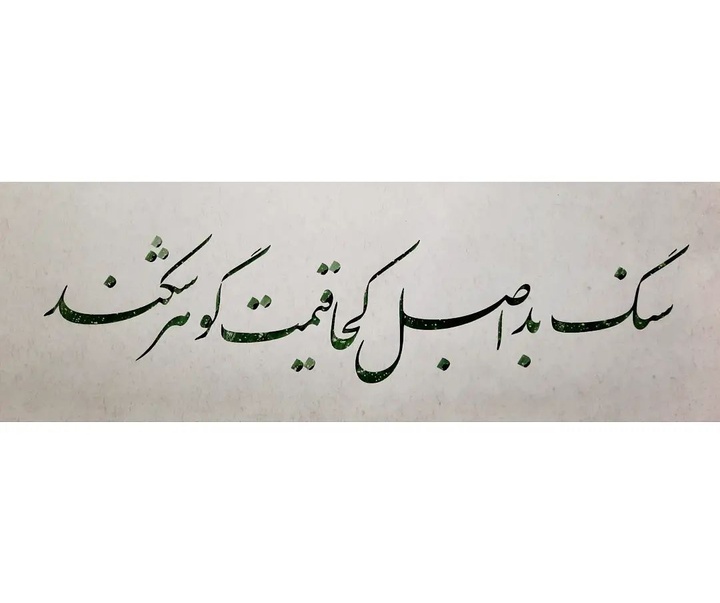 سنگ بد اصل کجا قیمت گوهر شکند